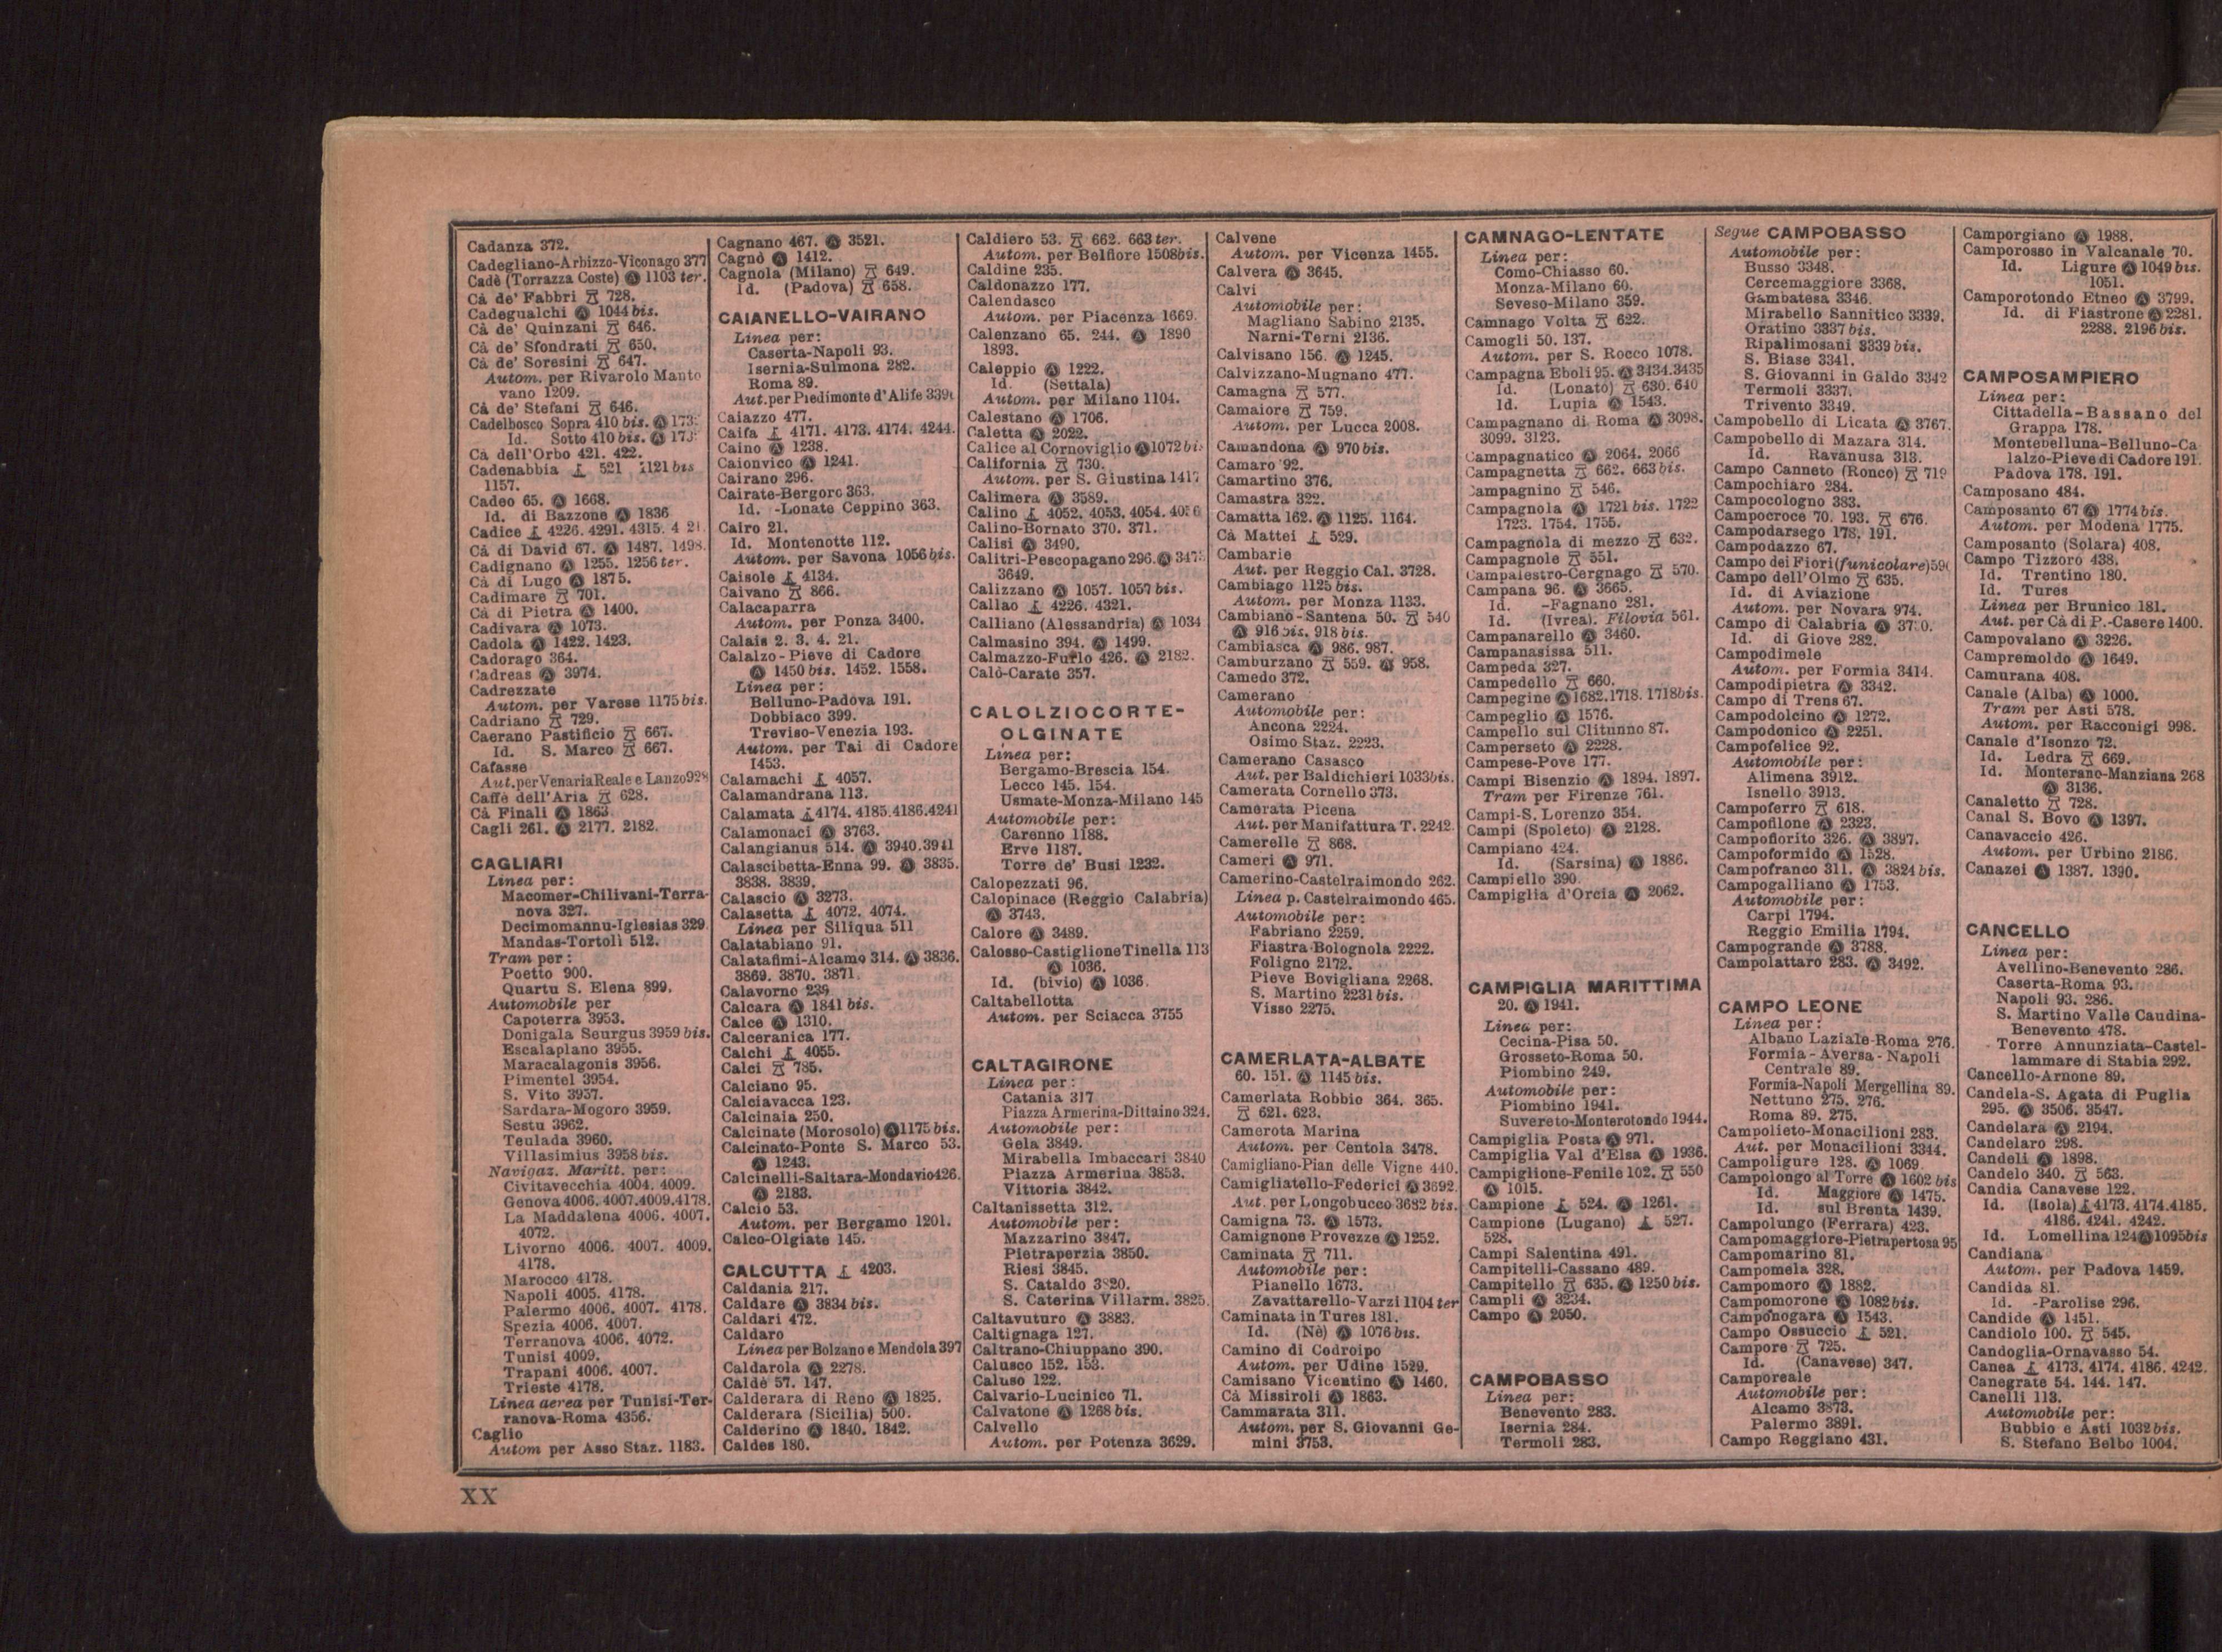 Cadanza 372.
Cadegliano-Arbizzo-Viconago 377
Cadè (Torrazza Coste) Ⓐ 1103 ter.
Cà de' Fabbri 728.
Cadegualchi Ⓐ 1044 bis.
Cà de' Quinzani 646.
Cà de' Sfondrati 650.
Cà de' Soresini 647.
Autom. per Rivarolo Manto
vano 1209.
Cà de' Stefani 646.
Cadelbosco Sopra 410 bis. Ⓐ
Id. Sotto 410 bis. Ⓐ
Cà dell'Orbo 421. 422.
Cadenabbia 521 1121 bis
1157.
Cadeo 65. Ⓐ 1668.
Id. di Bazzone Ⓐ 1836
Cadice 4226. 4291. 4315.
Cà di David 67. Ⓐ 1487. 1498.
Cadignano Ⓐ 1255. 1256 ter.
Cà di Lugo Ⓐ 1875.
Cadimare 701.
Cà di Pietra Ⓐ 1400.
Cadivara Ⓐ 1073.
Cadola Ⓐ 1422. 1423.
Cadorago 364.
Cadreas Ⓐ 3974.
Cadrezzate
Autom. per Varese 1175 bis.
Cadriano 729.
Caerano Pastificio 667.
Id. S. Marco 667.
Cafasse
Aut. per Venaria Reale e Lanzo 928
Caffè dell'Aria 628.
Cà Finali Ⓐ 1863
Cagli 261. Ⓐ 2177. 2182.
CAGLIARI
Linea per:
Macomer-Chilivani-Terra-
nova 327.
Decimomannu-Iglesias 329
Mandas-Tortolì 512.
Tram per:
Poetto 900.
Quartu S. Elena 899.
Automobile per
Capoterra 3953.
Donigala Seurgus 3959 bis.
Escalaplano 3955.
Maracalagonis 3956.
Pimentel 3954.
S. Vito 3957.
Sardara-Mogoro 3959.
Sestu 3962.
Teulada 3960.
Villasimius 3958 bis.
Navigaz. Maritt. per:
Civitavecchia 4004. 4009.
Genova 4006. 4007. 4009. 4178.
La Maddalena 4006. 4007.
4072.
Livorno 4006. 4007. 4009.
4178.
Marocco 4178.
Napoli 4005. 4178.
Palermo 4006. 4007. 4178.
Spezia 4006. 4007.
Terranova 4006. 4072.
Tunisi 4009.
Trapani 4006. 4007.
Trieste 4178.
Linea aerea per Tunisi-Ter-
ranova-Roma 4356.
Caglio
Autom per Asso Staz. 1183.
Cagnano 467. Ⓐ 3521.
Cagnò Ⓐ 1412.
Cagnola (Milano) 649.
Id. (Padova) 658.
CAIANELLO-VAIRANO
Linea per:
Caserta-Napoli 93.
Isernia-Sulmona 282.
Roma 89.
Aut. per Piedimonte d'Alife
Caiazzo 477.
Caifa 4171. 4173. 4174. 4244.
Caino Ⓐ 1238.
Caionvico Ⓐ 1241.
Cairano 296.
Cairate-Bergoro 363.
Id. -Lonate Ceppino 363.
Cairo 21.
Id. Montenotte 112.
Autom. per Savona 1056 bis.
Caisole 4134.
Caivano 866.
Calacaparra
Autom. per Ponza 3400.
Calais 2. 3. 4. 21.
Calalzo-Pieve di Cadore
Ⓐ 1450 bis. 1452. 1558.
Linea per:
Belluno-Padova 191.
Dobbiaco 399.
Treviso-Venezia 193.
Autom. per Tai di Cadore
1453.
Calamachi 4057.
Calamandrana 113.
Calamata 4174. 4185. 4186. 4241
Calamonaci Ⓐ 3763.
Calangianus 514. Ⓐ 3940. 3941
Calascibetta-Enna 99. Ⓐ 3835.
3838. 3839.
Calascio Ⓐ 3273.
Calasetta 4072. 4074.
Linea per Siliqua 511
Calatabiano 91.
Calatafimi-Alcamo 314. Ⓐ 3836.
3869. 3870. 3871.
Calavorno 239
Calcara Ⓐ 1841 bis.
Calce Ⓐ 1310.
Calceranica 177.
Calchi 4055.
Calci 785.
Calciano 95.
Calciavacca 123.
Calcinaia 250.
Calcinate (Morosolo) Ⓐ 1175 bis.
Calcinato-Ponte S. Marco 53.
Ⓐ 1243.
Calcinelli-Saltara-Mondavio 426.
Ⓐ 2183.
Calcio 53.
Autom. per Bergamo 1201.
Calco-Olgiate 145.
CALCUTTA 4203.
Caldania 217.
Caldare Ⓐ 3834 bis.
Caldari 472.
Caldaro
Linea per Bolzano e Mendola 397
Caldarola Ⓐ 2278.
Caldè 57. 147.
Calderara di Reno Ⓐ 1825.
Calderara (Sicilia) 500.
Calderino Ⓐ 1840. 1842.
Caldes 180.
Caldiero 53. 662. 663 ter.
Autom. per Belfiore 1508 bis.
Caldine 235.
Caldonazzo 177.
Calendasco
Autom. per Piacenza 1669.
Calenzano 65. 244. Ⓐ 1890
1893.
Caleppio Ⓐ 1222.
Id. (Settala)
Autom. per Milano 1104.
Calestano Ⓐ 1706.
Caletta Ⓐ 2022.
Calice al Cornoviglio Ⓐ 1072 bis
California 730.
Autom. per S. Giustina 1417
Calimera Ⓐ 3589.
Calino 4052. 4053. 4054.
Calino-Bornato 370. 371.
Calisi Ⓐ 3490.
Calitri-Pescopagano 296. Ⓐ
3649.
Calizzano Ⓐ 1057. 1057 bis.
Callao 4226. 4321.
Calliano (Alessandria) Ⓐ 1034
Calmasino 394. Ⓐ 1499.
Calmazzo-Furlo 426. Ⓐ 2182.
Calò-Carate 357.
CALOLZIOCORTE-
OLGINATE
Linea per:
Bergamo-Brescia 154.
Lecco 145. 154.
Usmate-Monza-Milano 145
Automobile per:
Carenno 1188.
Erve 1187.
Torre de' Busi 1232.
Calopezzati 96.
Calopinace (Reggio Calabria)
Ⓐ 3743.
Calore Ⓐ 3489.
Calosso-Castiglione Tinella 113
Ⓐ 1036.
Id. (bivio) Ⓐ 1036.
Caltabellotta
Autom. per Sciacca 3755
CALTAGIRONE
Linea per:
Catania 317
Piazza Armerina-Dittaino 324.
Automobile per:
Gela 3849.
Mirabella Imbaccari 3840
Piazza Armerina 3853.
Vittoria 3842.
Caltanissetta 312.
Automobile per:
Mazzarino 3847.
Pietraperzia 3850.
Riesi 3845.
S. Cataldo 3820.
S. Caterina Villarm. 3825.
Caltavuturo Ⓐ 3883.
Caltignaga 127.
Caltrano-Chiuppano 390.
Calusco 152. 153.
Caluso 122.
Calvario-Lucinico 71.
Calvatone Ⓐ 1268 bis.
Calvello
Autom. per Potenza 3629.
Calvene
Autom. per Vicenza 1455.
Calvera Ⓐ 3645.
Calvi
Automobile per:
Magliano Sabino 2135.
Narni-Terni 2136.
Calvisano 156. Ⓐ 1245.
Calvizzano-Mugnano 477.
Camagna 577.
Camaiore 759.
Autom. per Lucca 2008.
Camandona Ⓐ 970 bis.
Camaro 92.
Camartino 376.
Camastra 322.
Camatta 162. Ⓐ 1125. 1164.
Cà Mattei 529.
Cambarie
Aut. per Reggio Cal. 3728.
Cambiago 1125 bis.
Autom. per Monza 1133.
Cambiano-Santena 50. 540
Ⓐ 916 bis. 918 bis.
Cambiasca Ⓐ 986. 987.
Camburzano 559. Ⓐ 958.
Camedo 372.
Camerano
Automobile per:
Ancona 2224.
Osimo Staz. 2223.
Camerano Casasco
Aut. per Baldichieri 1033 bis.
Camerata Cornello 373.
Camerata Picena
Aut. per Manifattura T. 2242.
Camerelle 868.
Cameri Ⓐ 971.
Camerino-Castelraimondo 262.
Linea p. Castelraimondo 465.
Automobile per:
Fabriano 2259.
Fiastra-Bolognola 2222.
Foligno 2172.
Pieve Bovigliana 2268.
S. Martino 2231 bis.
Visso 2275.
CAMERLATA-ALBATE
60. 151. Ⓐ 1145 bis.
Camerlata Robbio 364. 365.
621. 623.
Camerota Marina
Autom. per Centola 3478.
Camigliano-Pian delle Vigne 440.
Camigliatello-Federici Ⓐ 3692.
Aut. per Longobucco 3682 bis.
Camigna 73. Ⓐ 1573.
Camignone Provezze Ⓐ 1252.
Caminata 711.
Automobile per:
Pianello 1673.
Zavattarello-Varzi 1104 ter
Caminata in Tures 181.
Id. (Nè) Ⓐ 1076 bis.
Camino di Codroipo
Autom. per Udine 1529.
Camisano Vicentino Ⓐ 1460.
Cà Missiroli Ⓐ 1863.
Cammarata 311.
Autom. per S. Giovanni Ge-
mini 3753.
CAMNAGO-LENTATE
Linea per:
Como-Chiasso 60.
Monza-Milano 60.
Seveso-Milano 359.
Camnago Volta 622.
Camogli 50. 137.
Autom. per S. Rocco 1078.
Campagna Eboli 95. Ⓐ 3434. 3435
Id. (Lonato) 630. 640
Id. Lupia Ⓐ 1543.
Campagnano di Roma Ⓐ 3098.
3099. 3123.
Campagnatico Ⓐ 2064. 2066
Campagnetta 662. 663 bis.
Campagnino 546.
Campagnola Ⓐ 1721 bis. 1722
1723. 1754. 1755.
Campagnola di mezzo 632.
Campagnole 551.
Campalestro-Cergnago 570.
Campana 96. Ⓐ 3665.
Id. -Fagnano 281.
Id. (Ivrea). Filovia 561.
Campanarello Ⓐ 3460.
Campanasissa 511.
Campeda 327.
Campedello 660.
Campegine Ⓐ 1682. 1718. 1718 bis.
Campeglio Ⓐ 1576.
Campello sul Clitunno 87.
Camperseto Ⓐ 2228.
Campese-Pove 177.
Campi Bisenzio Ⓐ 1894. 1897.
Tram per Firenze 761.
Campi-S. Lorenzo 354.
Campi (Spoleto) Ⓐ 2128.
Campiano 424.
Id. (Sarsina) Ⓐ 1886.
Campiello 390
Campiglia d'Orcia Ⓐ 2062.
CAMPIGLIA MARITTIMA
20. Ⓐ 1941.
Linea per:
Cecina-Pisa 50.
Grosseto-Roma 50.
Piombino 249.
Automobile per:
Piombino 1941.
Suvereto-Monterotondo 1944.
Campiglia Posta Ⓐ 971.
Campiglia Val d'Elsa Ⓐ 1936.
Campiglione-Fenile 102. 550
Ⓐ 1015.
Campione 524. Ⓐ 1261.
Campione (Lugano) 527.
528.
Campi Salentina 491.
Campitelli-Cassano 489.
Campitello 635. Ⓐ 1250 bis.
Campli Ⓐ 3234.
Campo Ⓐ 2050.
CAMPOBASSO
Linea per:
Benevento 283.
Isernia 284.
Termoli 283.
Segue CAMPOBASSO
Automobile per:
Busso 3348.
Cercemaggiore 3368.
Gambatesa 3346.
Mirabello Sannitico 3339.
Oratino 3337 bis.
Ripalimosani 3339 bis.
S. Biase 3341.
S. Giovanni in Galdo 3342
Termoli 3337.
Trivento 3349.
Campobello di Licata Ⓐ 3767.
Campobello di Mazara 314.
Id. Ravanusa 313.
Campo Canneto (Ronco) 719
Campochiaro 284.
Campocologno 383.
Campocroce 70. 193. 676.
Campodarsego 178. 191.
Campodazzo 67.
Campo dei Fiori (funicolare)
Campo dell'Olmo 635.
Id. di Aviazione
Autom. per Novara 974.
Campo di Calabria Ⓐ
Id. di Giove 282.
Campodimele
Autom. per Formia 3414.
Campodipietra Ⓐ 3342.
Campo di Trens 67.
Campodolcino Ⓐ 1272.
Campodonico Ⓐ 2251.
Campofelice 92.
Automobile per:
Alimena 3912.
Isnello 3913.
Campoferro 618.
Campofilone Ⓐ 2323.
Campofiorito 326. Ⓐ 3897.
Campoformido Ⓐ 1528.
Campofranco 311. Ⓐ 3824 bis.
Campogalliano Ⓐ 1753.
Automobile per:
Carpi 1794.
Reggio Emilia 1794.
Campogrande Ⓐ 3788.
Campolattaro 283. Ⓐ 3492.
CAMPO LEONE
Linea per:
Albano Laziale-Roma 276.
Formia-Aversa-Napoli
Centrale 89.
Formia-Napoli Mergellina 89.
Nettuno 275. 276.
Roma 89. 275.
Campolieto-Monacilioni 283.
Aut. per Monacilioni 3344.
Campoligure 128. Ⓐ 1069
Campolongo al Torre Ⓐ 1602 bis
Id. Maggiore Ⓐ 1475.
Id. sul Brenta 1439.
Campolungo (Ferrara) 423.
Campomaggiore-Pietrapertosa 95
Campomarino 81.
Campomela 328.
Campomoro Ⓐ 1882.
Campomorone Ⓐ 1082 bis.
Camponogara Ⓐ 1543.
Campo Ossuccio 521.
Campore 725.
Id. (Canavese) 347.
Camporeale
Automobile per:
Alcamo 3873.
Palermo 3891.
Campo Reggiano 431.
Camporgiano Ⓐ 1988.
Camporosso in Valcanale 70.
Id. Ligure Ⓐ 1049 bis.
1051.
Camporotondo Etneo Ⓐ 3799.
Id. di Fiastrone Ⓐ 2281.
2288. 2196 bis.
CAMPOSAMPIERO
Linea per:
Cittadella-Bassano del
Grappa 178.
Montebelluna-Belluno-Ca
lalzo-Pieve di Cadore 191.
Padova 178. 191.
Camposano 484.
Camposanto 67 Ⓐ 1774 bis.
Autom. per Modena 1775.
Camposanto (Solara) 408.
Campo Tizzoro 438.
Id. Trentino 180.
Id. Tures
Linea per Brunico 181.
Aut. per Cà di P.-Casere 1400.
Campovalano Ⓐ 3226.
Campremoldo Ⓐ 1649.
Camurana 408.
Canale (Alba) Ⓐ 1000.
Tram per Asti 578.
Autom. per Racconigi 998.
Canale d'Isonzo 72.
Id. Ledra 669.
Id. Monterano-Manziana 268
Ⓐ 3136.
Canaletto 728.
Canal S. Bovo Ⓐ 1397.
Canavaccio 426.
Autom. per Urbino 2186.
Canazei Ⓐ 1387. 1390.
CANCELLO
Linea per:
Avellino-Benevento 286.
Caserta-Roma 93.
Napoli 93. 286.
S. Martino Valle Caudina-
Benevento 478.
Torre Annunziata-Castel-
lammare di Stabia 292.
Cancello-Arnone 89.
Candela-S. Agata di Puglia
295. Ⓐ 3506. 3547.
Candelara Ⓐ 2194.
Candelaro 298.
Candeli Ⓐ 1898.
Candelo 340. 563.
Candia Canavese 122.
Id. (Isola) 4173. 4174. 4185.
4186. 4241. 4242.
Id. Lomellina 124 Ⓐ 1095 bis
Candiana
Autom. per Padova 1459.
Candida 81.
Id. -Parolise 296.
Candide Ⓐ 1451.
Candiolo 100. 545.
Candoglia-Ornavasso 54.
Canea 4173. 4174. 4186. 4242.
Canegrate 54. 144. 147.
Canelli 113.
Automobile per:
Bubbio e Asti 1032 bis.
S. Stefano Belbo 1004.
XX